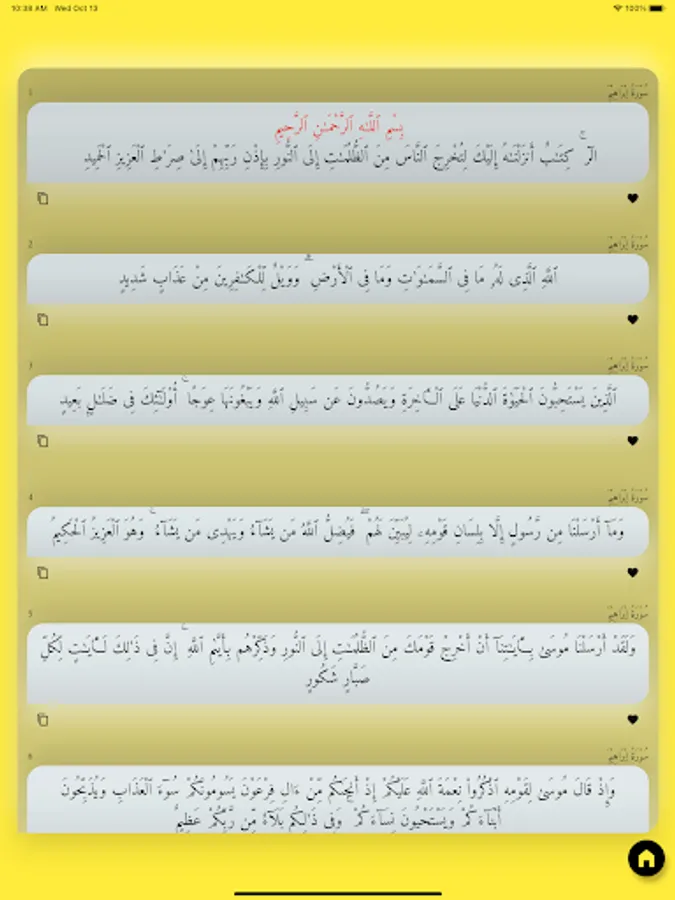 10:38 AM Wed Oct 13
100%
1
سُورَةُ إِبۡرَاهِيم
بِسۡمِ ٱللَّهِ ٱلرَّحۡمَٰنِ ٱلرَّحِيمِ
الٓرۚ كِتَٰبٌ أَنزَلۡنَٰهُ إِلَيۡكَ لِتُخۡرِجَ ٱلنَّاسَ مِنَ ٱلظُّلُمَٰتِ إِلَى ٱلنُّورِ بِإِذۡنِ رَبِّهِمۡ إِلَىٰ صِرَٰطِ ٱلۡعَزِيزِ ٱلۡحَمِيدِ
2
سُورَةُ إِبۡرَاهِيم
ٱللَّهِ ٱلَّذِي لَهُۥ مَا فِي ٱلسَّمَٰوَٰتِ وَمَا فِي ٱلۡأَرۡضِۗ وَوَيۡلٌ لِّلۡكَٰفِرِينَ مِنۡ عَذَابٍ شَدِيدٍ
3
سُورَةُ إِبۡرَاهِيم
ٱلَّذِينَ يَسۡتَحِبُّونَ ٱلۡحَيَوٰةَ ٱلدُّنۡيَا عَلَى ٱلۡأٓخِرَةِ وَيَصُدُّونَ عَن سَبِيلِ ٱللَّهِ وَيَبۡغُونَهَا عِوَجًاۚ أُوْلَٰٓئِكَ فِي ضَلَٰلٍۭ بَعِيدٍ
4
سُورَةُ إِبۡرَاهِيم
وَمَآ أَرۡسَلۡنَا مِن رَّسُولٍ إِلَّا بِلِسَانِ قَوۡمِهِۦ لِيُبَيِّنَ لَهُمۡۖ فَيُضِلُّ ٱللَّهُ مَن يَشَآءُ وَيَهۡدِي مَن يَشَآءُۚ وَهُوَ ٱلۡعَزِيزُ ٱلۡحَكِيمُ
5
سُورَةُ إِبۡرَاهِيم
وَلَقَدۡ أَرۡسَلۡنَا مُوسَىٰ بِـَٔايَٰتِنَآ أَنۡ أَخۡرِجۡ قَوۡمَكَ مِنَ ٱلظُّلُمَٰتِ إِلَى ٱلنُّورِ وَذَكِّرۡهُم بِأَيَّىٰمِ ٱللَّهِۚ إِنَّ فِي ذَٰلِكَ لَأٓيَٰتٍ لِّكُلِّ
صَبَّارٍ شَكُورٍ
6
سُورَةُ إِبۡرَاهِيم
وَإِذۡ قَالَ مُوسَىٰ لِقَوۡمِهِ ٱذۡكُرُواْ نِعۡمَةَ ٱللَّهِ عَلَيۡكُمۡ إِذۡ أَنجَىٰكُم مِّنۡ ءَالِ فِرۡعَوۡنَ يَسُومُونَكُمۡ سُوٓءَ ٱلۡعَذَابِ وَيُذَبِّحُونَ
أَبۡنَآءَكُمۡ وَيَسۡتَحۡيُونَ نِسَآءَكُمۡۚ وَفِي ذَٰلِكُم بَلَآءٌ مِّن رَّبِّكُمۡ عَظِيمٌ